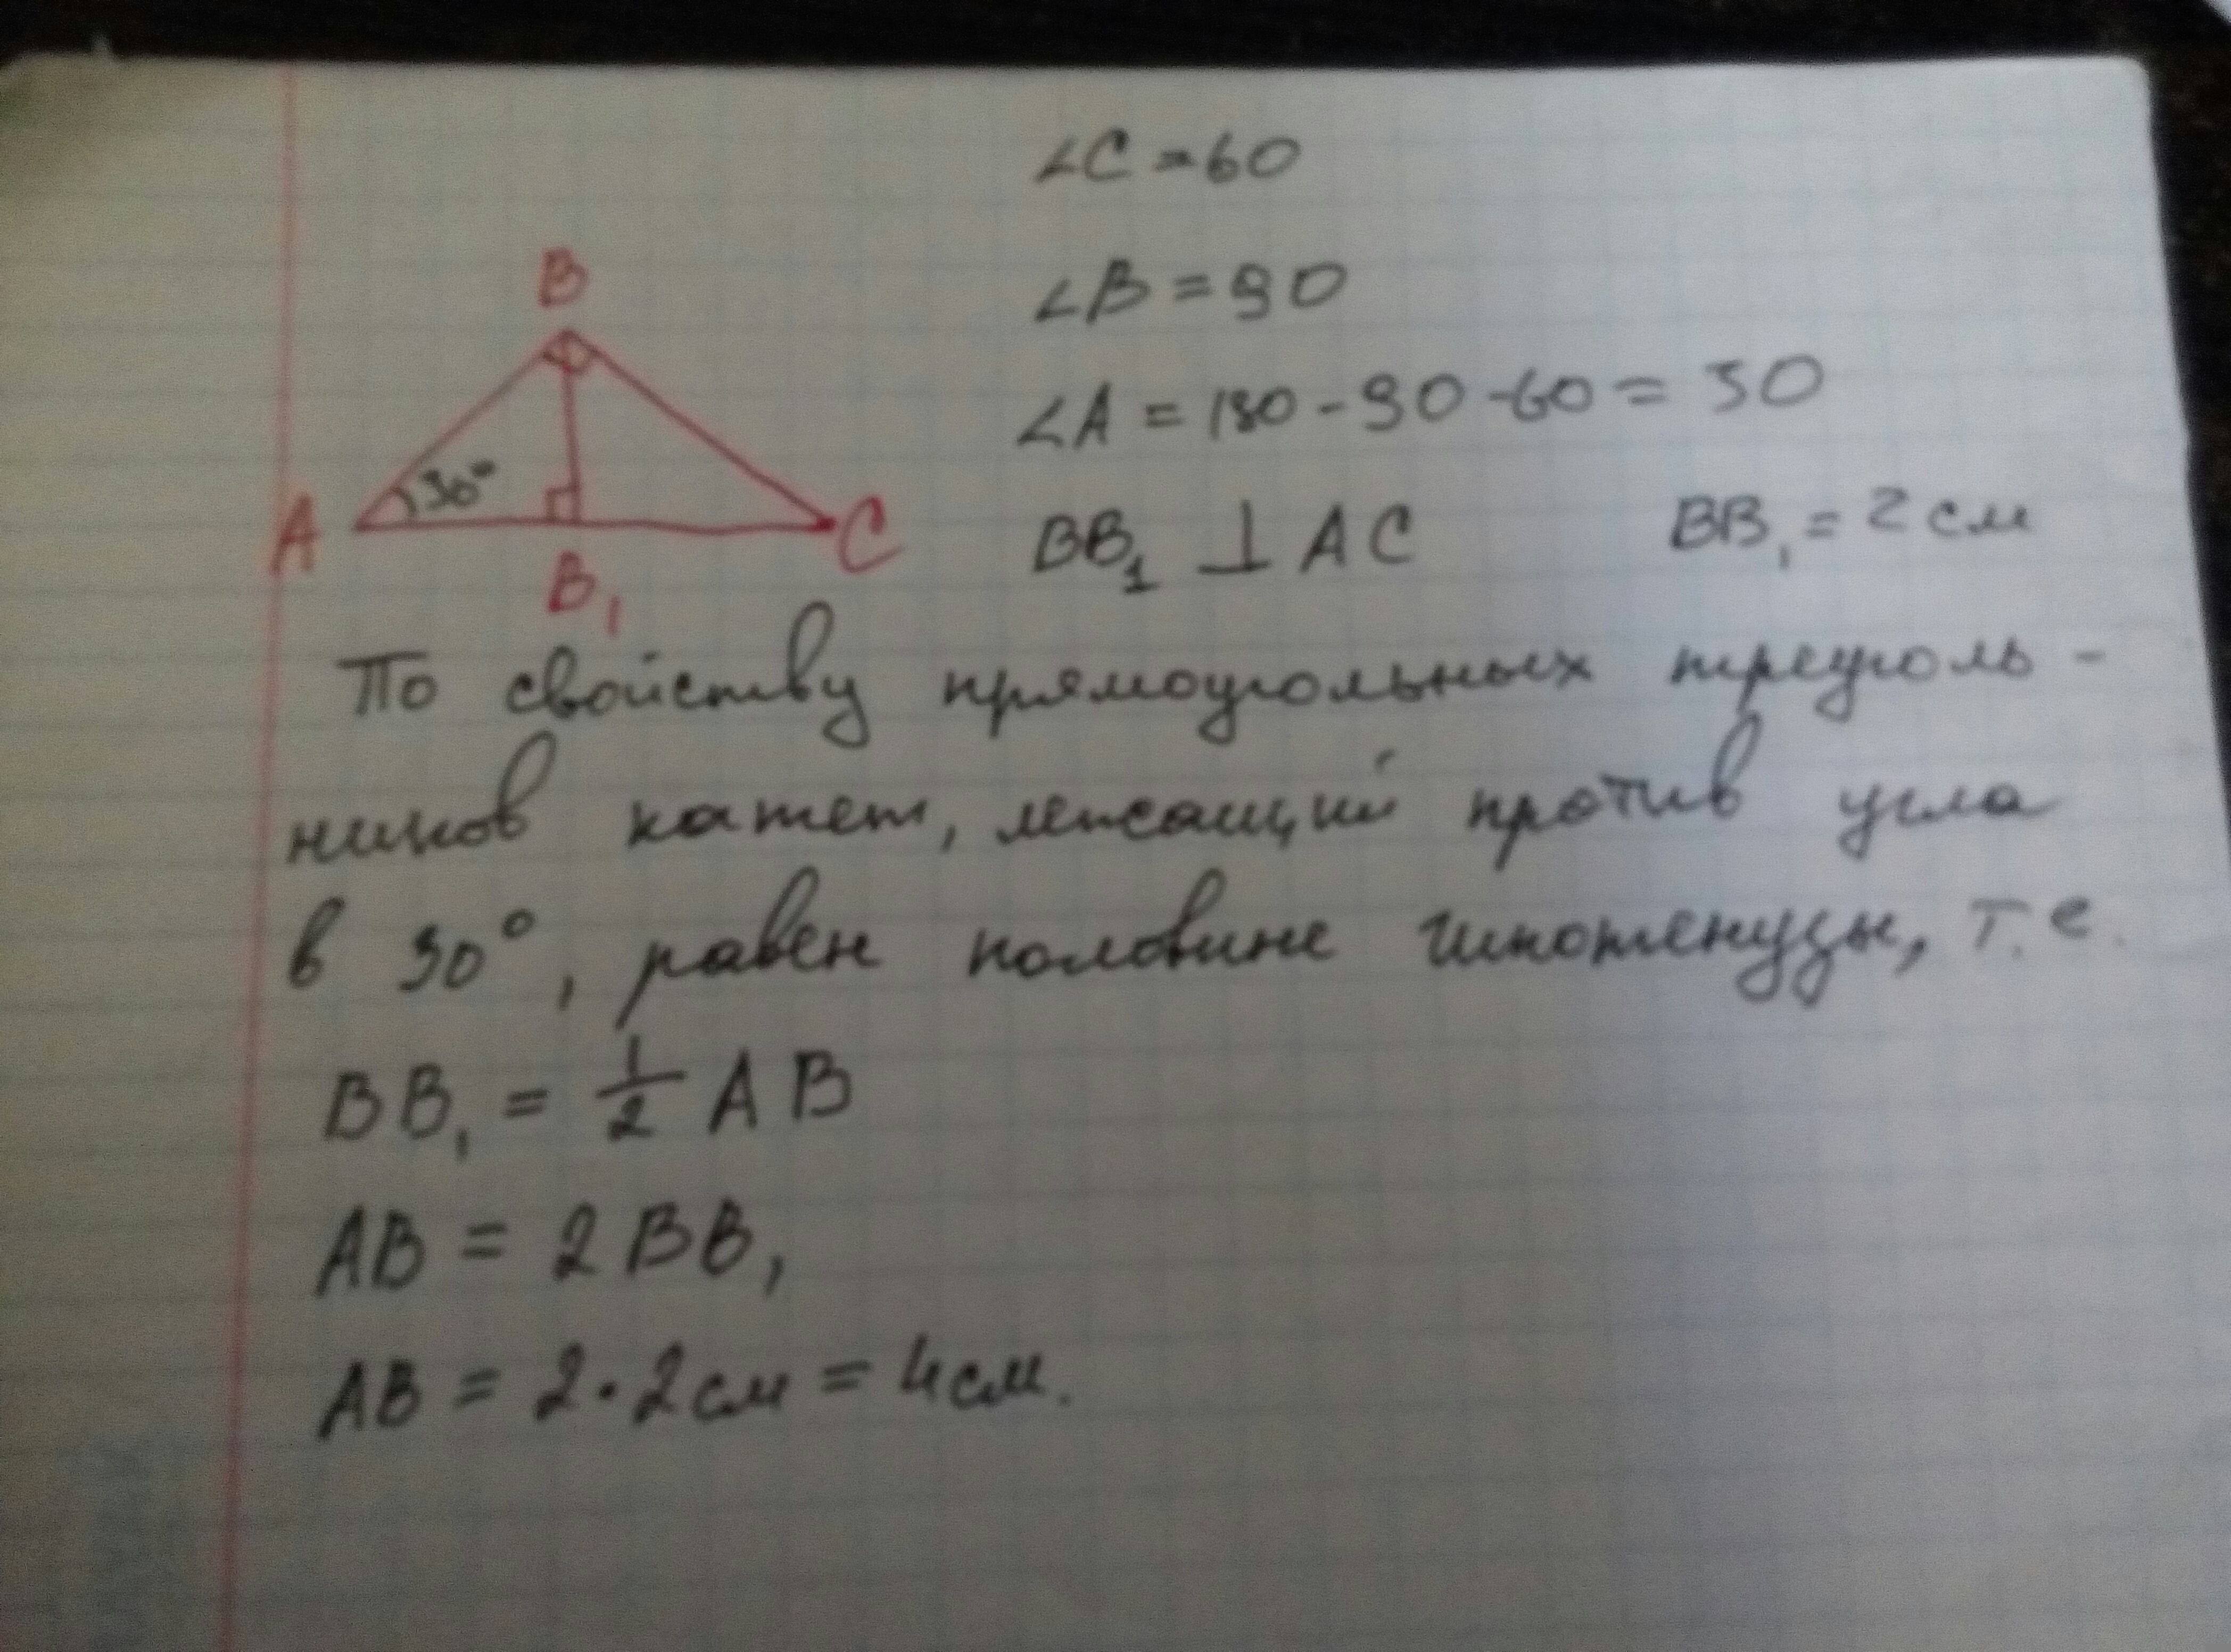 ∠C = 60
B
∠B = 90
∠A = 180 - 90 - 60 = 30
30°
A
C
B₁
BB₁ ⊥ AC
BB₁ = 2 см
По свойству прямоугольных треуголь-
ников катет, лежащий против угла
в 30°, равен половине гипотенузы, т.е.
BB₁ = 1/2 AB
AB = 2BB₁
AB = 2 · 2 см = 4 см.